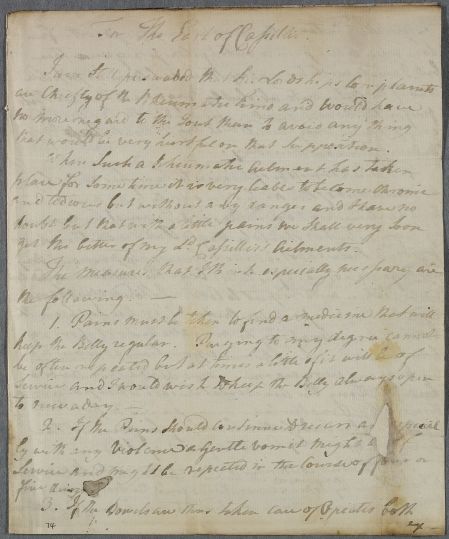 For The Earl of Cassillis
I am still perswaded that his Lordships complaints
are Chiefly of the Rheumatic kind and would have
no more regard to the Gout than to avoid any thing
that would be very hurtfull on that Supposition.
When Such a Rheumatic Ailment has taken
place for Some time it is very liable to become chronic
and tedious but without any danger and I have no
doubt but that with a little pains we shall very soon
get the better of my Ld. Cassillis's Ailments.
The measures that I think especially necessary are
the following. —
1. Pains must be taken to find a medicine that will
keep the Belly regular. Purging to any degree cannot
be often repeated but at times a little of it will be of
Service and I would wish to keep the Belly always open
to once a day.
2. If the Pains should continue to recur and especial
ly with any violence a Gentle vomit might be of
Service and might be repeated in the Course of four or
five days
3. If the Bowels are thus taken care of Opiates both
74